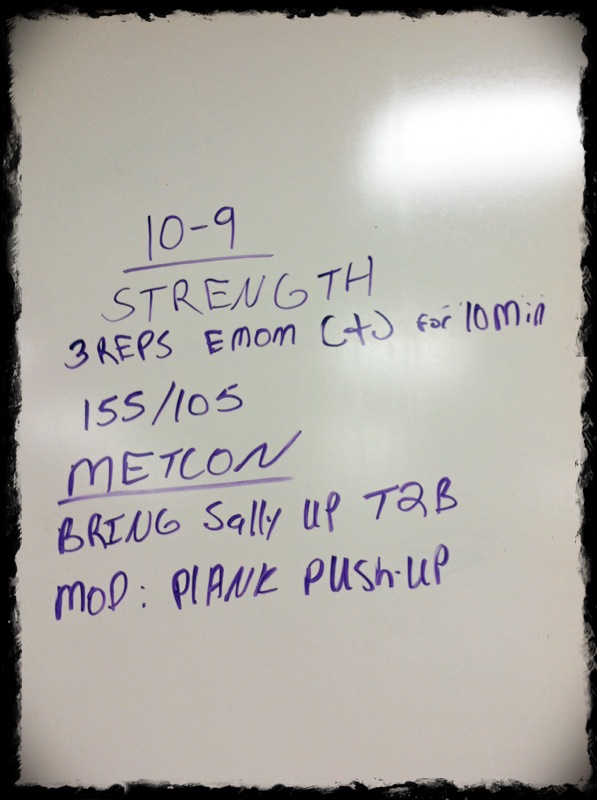 10-9
STRENGTH
3 REPS EMOM (+) for 10 Min
155/105
METCON
BRING Sally UP T2B
MOD: PLANK PUSh-UP